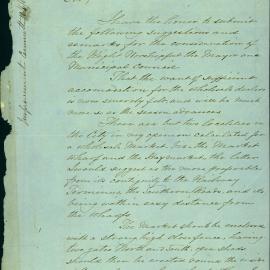 I have the honor to submit
the following suggestions and
remarks for the consideration of
the Right Worshipful the Mayor and
Municipal Council
That the want of sufficient
accommodation for the wholesale dealers
is now severely felt, and will be much
more so as the season advances
There are but two localities in
the City in my opinion calculated for
a wholesale Market viz the Market
Wharf and the Haymarket, the latter
I would suggest as the most preferable
from its contiguity to the Railway
Terminus the Southern Roads and its
being within easy distance from
the Wharfs.
The Market should be enclosed
with a strong high fence having
two gates North and South, open sheds
should then be erected round the inside